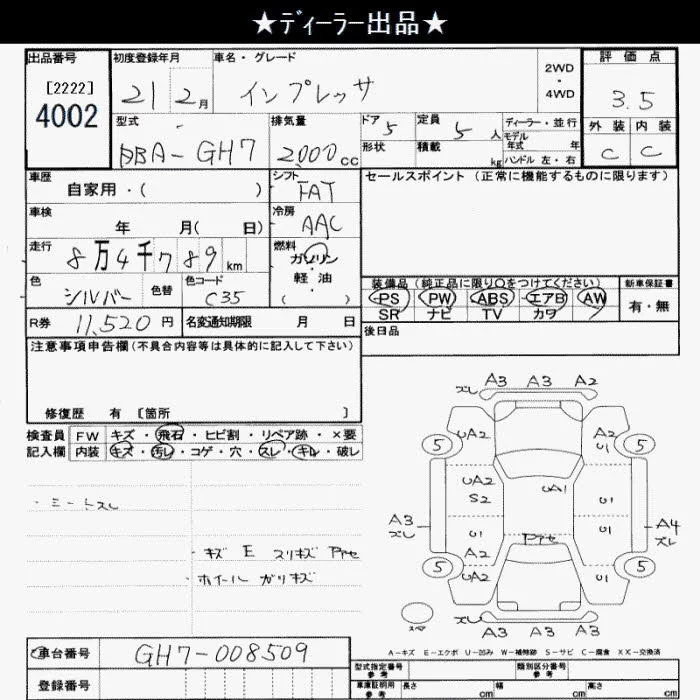 ★ディーラー出品★
出品番号 初度登録年月 車名・グレード 評価点
[2222]
4002
21年2月 インプレッサ 2WD・4WD 3.5
型式 排気量 ドア 5 定員 5人 ディーラー・並行 外装 内装
DBA-GH7 2000cc 形状 積載 kg モデル年式 年 ハンドル 左・右 C C
車歴 自家用・( ) シフト FAT セールスポイント (正常に機能するものに限ります)
車検 年 月( 日) 冷房 AAC
走行 8万4千789km 燃料 ガソリン・軽油 ( ・ )
色 シルバー 色替 色コード C35
装備品 (純正品に限り○をつけてください) 新車保証書
PS PW ABS エアB AW 有・無
SR ナビ TV カワ
R券 11,520円 名変通知期限 月 日
後日品
注意事項申告欄 (不具合内容等は具体的に記入して下さい)
修復歴 有 [箇所 ]
検査員 FW キズ・飛石・ヒビ割・リペア跡・×要
記入欄 内装 キズ・汚レ・コゲ・穴・スレ・キレ・破レ
・シートスレ
・キズ E スリキズ アセ
・ホイール ガリキズ
ズレ A3 A3 A2
UA2 A2 U1
5 5
UA2 S2 UA1 U1
A3 ズレ U1 A2 アセ U1 A4 ズレ
5 5
UA2 U1
スペア ズレ A3 A3 A3
A-キズ E-エクボ U-凹み W-補修跡 S-サビ C-腐食 XX-交換済
車台番号 GH7-008509
登録番号
型式指定番号 参考 類別区分番号 参考
車庫証明用 参考 長さ cm 幅 cm 高さ cm